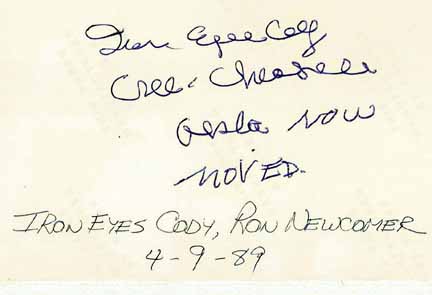 Iron Eyes Cody
Cree & Cherokee
NOW
MOVED.
IRON EYES CODY, RON NEWCOMER
4-9-89